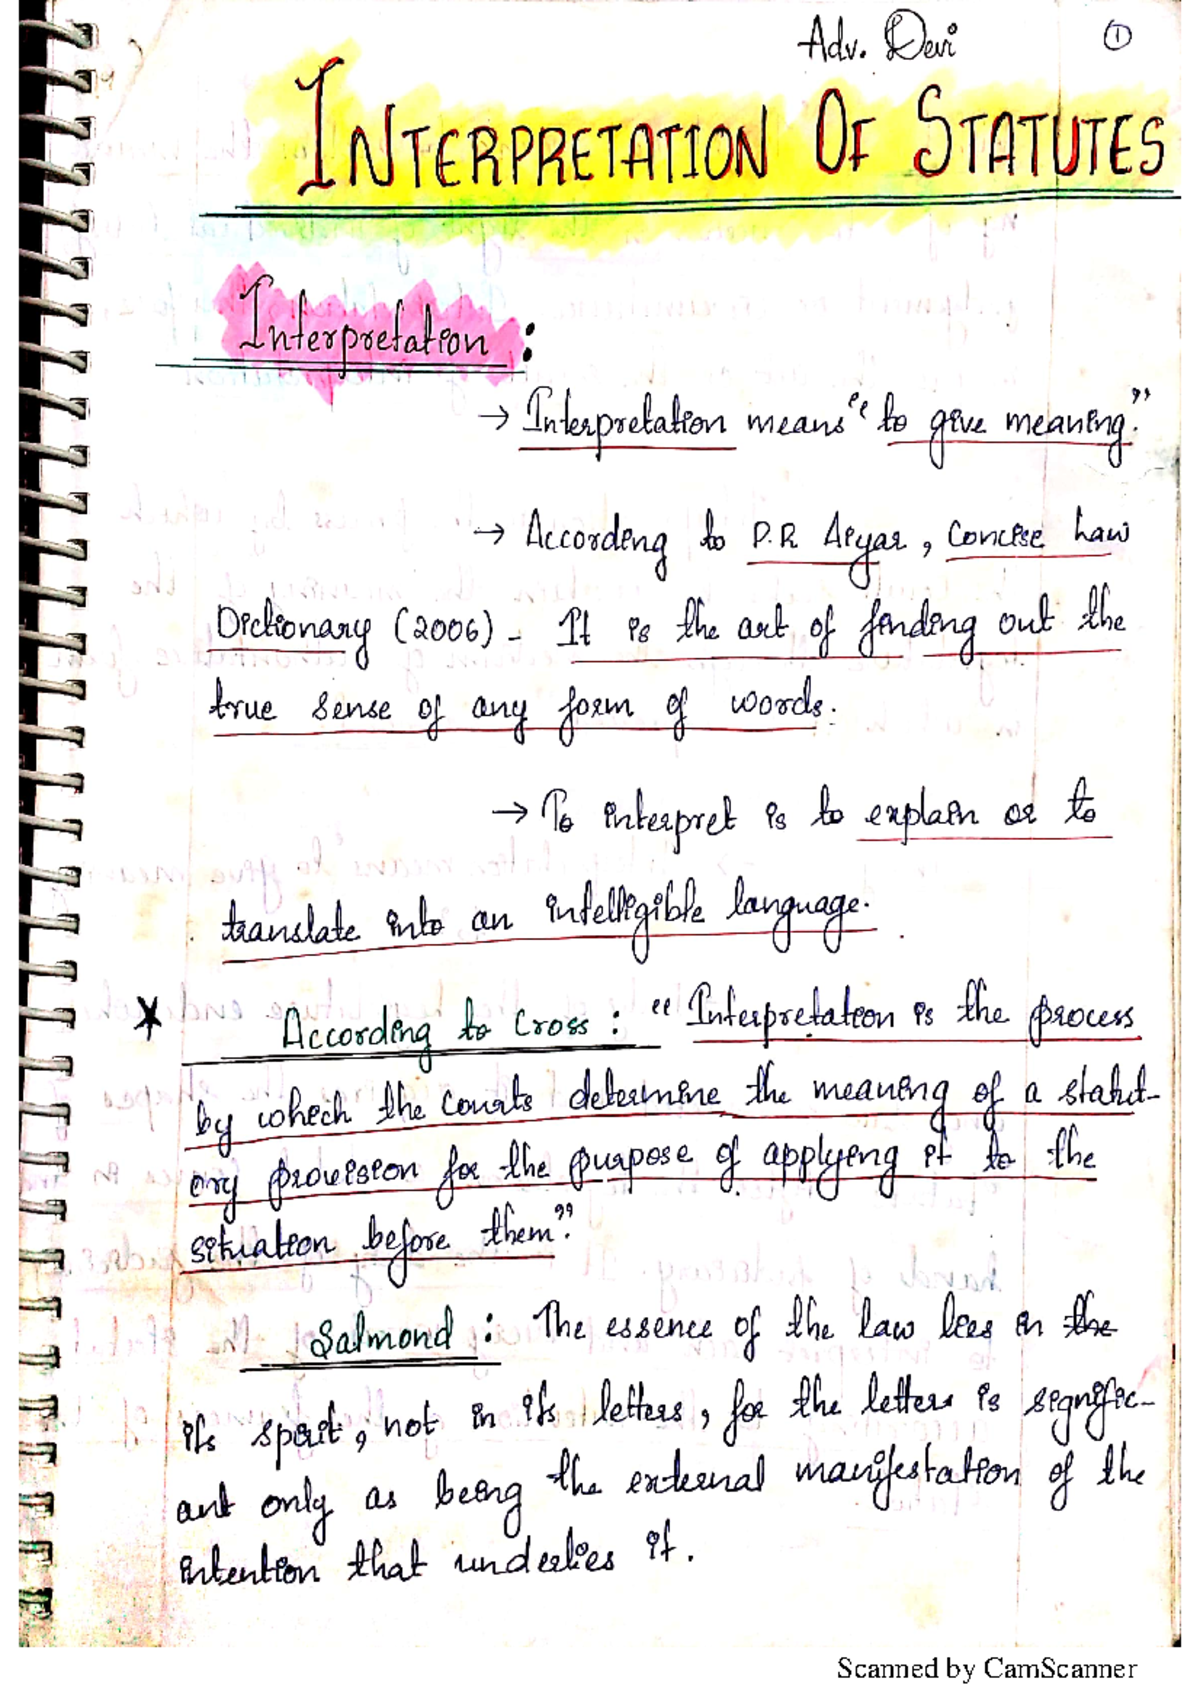 Adv. Devi ①
INTERPRETATION OF STATUTES
Interpretation :
→ Interpretation means “to give meaning.”
→ According to P.R Aiyar, Concise Law
Dictionary (2006) - It is the art of finding out the
true sense of any form of words.
→ To interpret is to explain or to
translate into an intelligible language.
* According to Cross : “Interpretation is the process
by which the courts determine the meaning of a statut-
ory provision for the purpose of applying it to the
situation before them”.
Salmond : The essence of the law lies in the
its spirit, not in its letters, for the letters is signific-
ant only as being the external manifestation of the
intention that underlies it.
Scanned by CamScanner